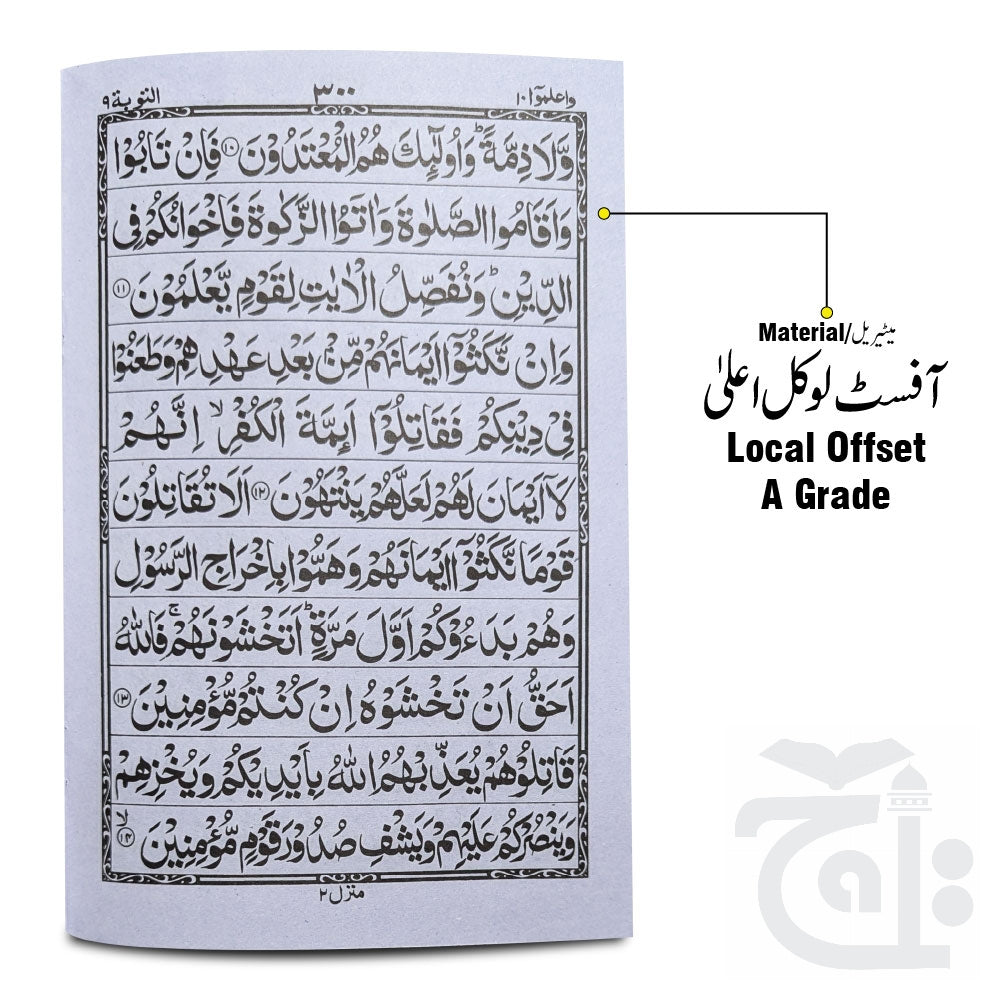 واعلموا ١٠
٣٠٠
التوبة ٩
وَّلَا ذِمَّةً ؕ وَاُولٰٓئِكَ هُمُ الْمُعْتَدُوْنَ ﴿۱۰﴾ فَاِنْ تَابُوْا
وَاَقَامُوا الصَّلٰوةَ وَاٰتَوُا الزَّكٰوةَ فَاِخْوَانُكُمْ فِى
الدِّيْنِ ؕ وَنُفَصِّلُ الْاٰيٰتِ لِقَوْمٍ يَّعْلَمُوْنَ ﴿۱۱﴾
وَاِنْ نَّكَثُوْۤا اَيْمَانَهُمْ مِّنْۢ بَعْدِ عَهْدِهِمْ وَطَعَنُوْا
فِىْ دِيْنِكُمْ فَقَاتِلُوْۤا اَئِمَّةَ الْكُفْرِ ۙ اِنَّهُمْ
لَاۤ اَيْمَانَ لَهُمْ لَعَلَّهُمْ يَنْتَهُوْنَ ﴿۱۲﴾ اَلَا تُقَاتِلُوْنَ
قَوْمًا نَّكَثُوْۤا اَيْمَانَهُمْ وَهَمُّوْا بِاِخْرَاجِ الرَّسُوْلِ
وَهُمْ بَدَءُوْكُمْ اَوَّلَ مَرَّةٍ ؕ اَتَخْشَوْنَهُمْ ۚ فَاللّٰهُ
اَحَقُّ اَنْ تَخْشَوْهُ اِنْ كُنْتُمْ مُّؤْمِنِيْنَ ﴿۱۳﴾
قَاتِلُوْهُمْ يُعَذِّبْهُمُ اللّٰهُ بِاَيْدِيْكُمْ وَيُخْزِهِمْ
وَيَنْصُرْكُمْ عَلَيْهِمْ وَيَشْفِ صُدُوْرَ قَوْمٍ مُّؤْمِنِيْنَ ۙ﴿۱۴﴾
منزل ٢
Material/میٹیریل
آفسٹ لوکل اعلیٰ
Local Offset
A Grade